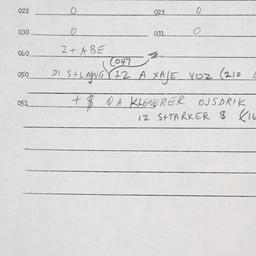 022 0 021 0
030 0 031 0
040 2+ ABE
(049
050 DI S+LANG 12 A XAJE VOZ (210
052 + $ Q A KLENERER OJSDRIK
12 S+TARKER $